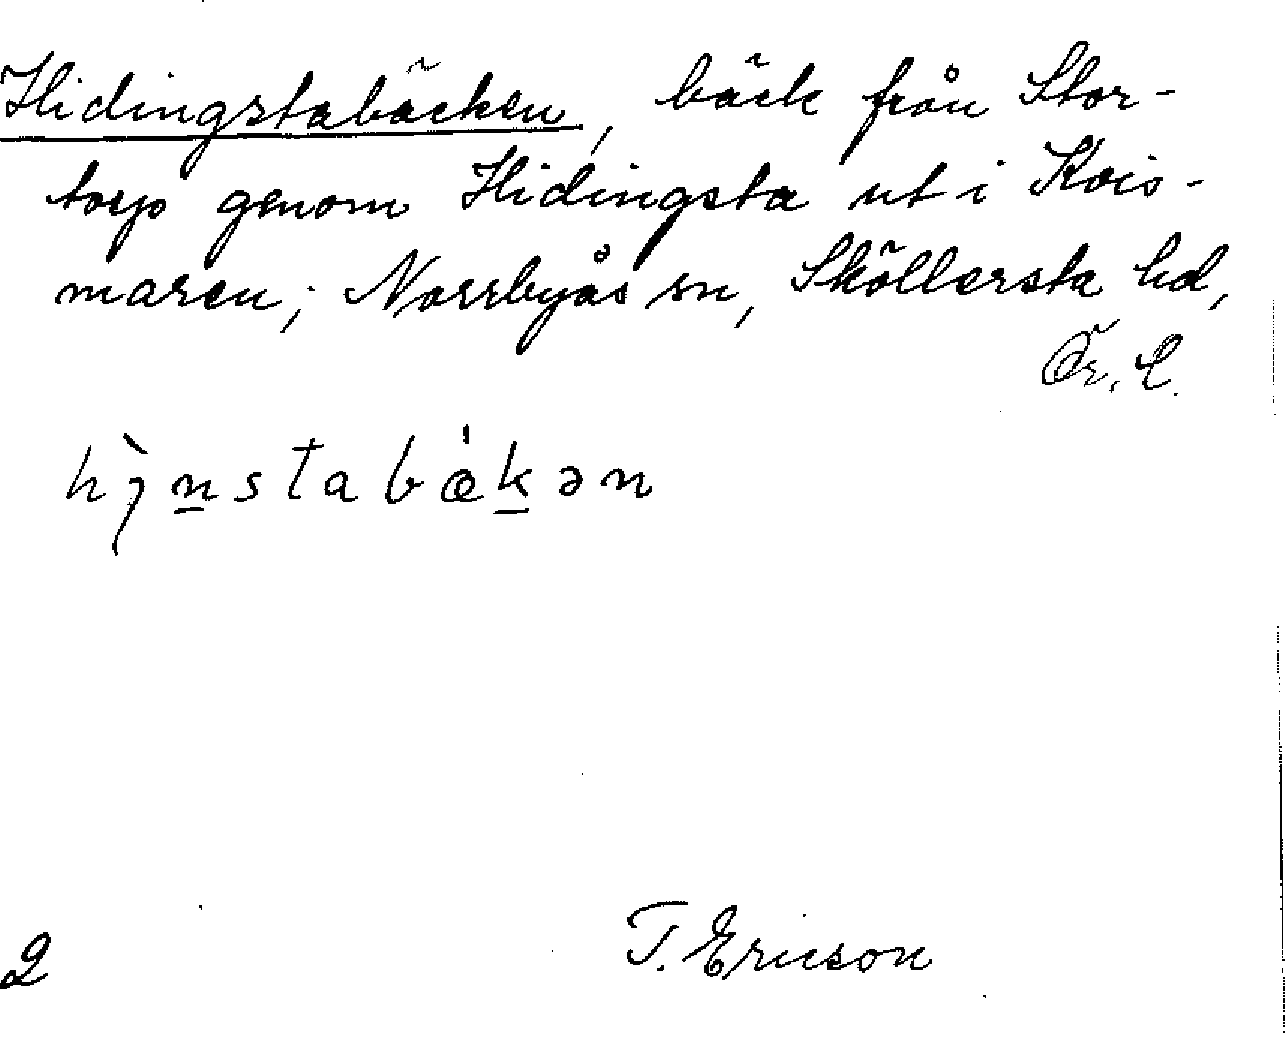 Hidingstabäcken, bäck från Stor-
torp genom Hidingsta ut i Kvis-
maren; Norrbyås sn, Sköllersta hd,
Ör. l.
T. Ericson
2